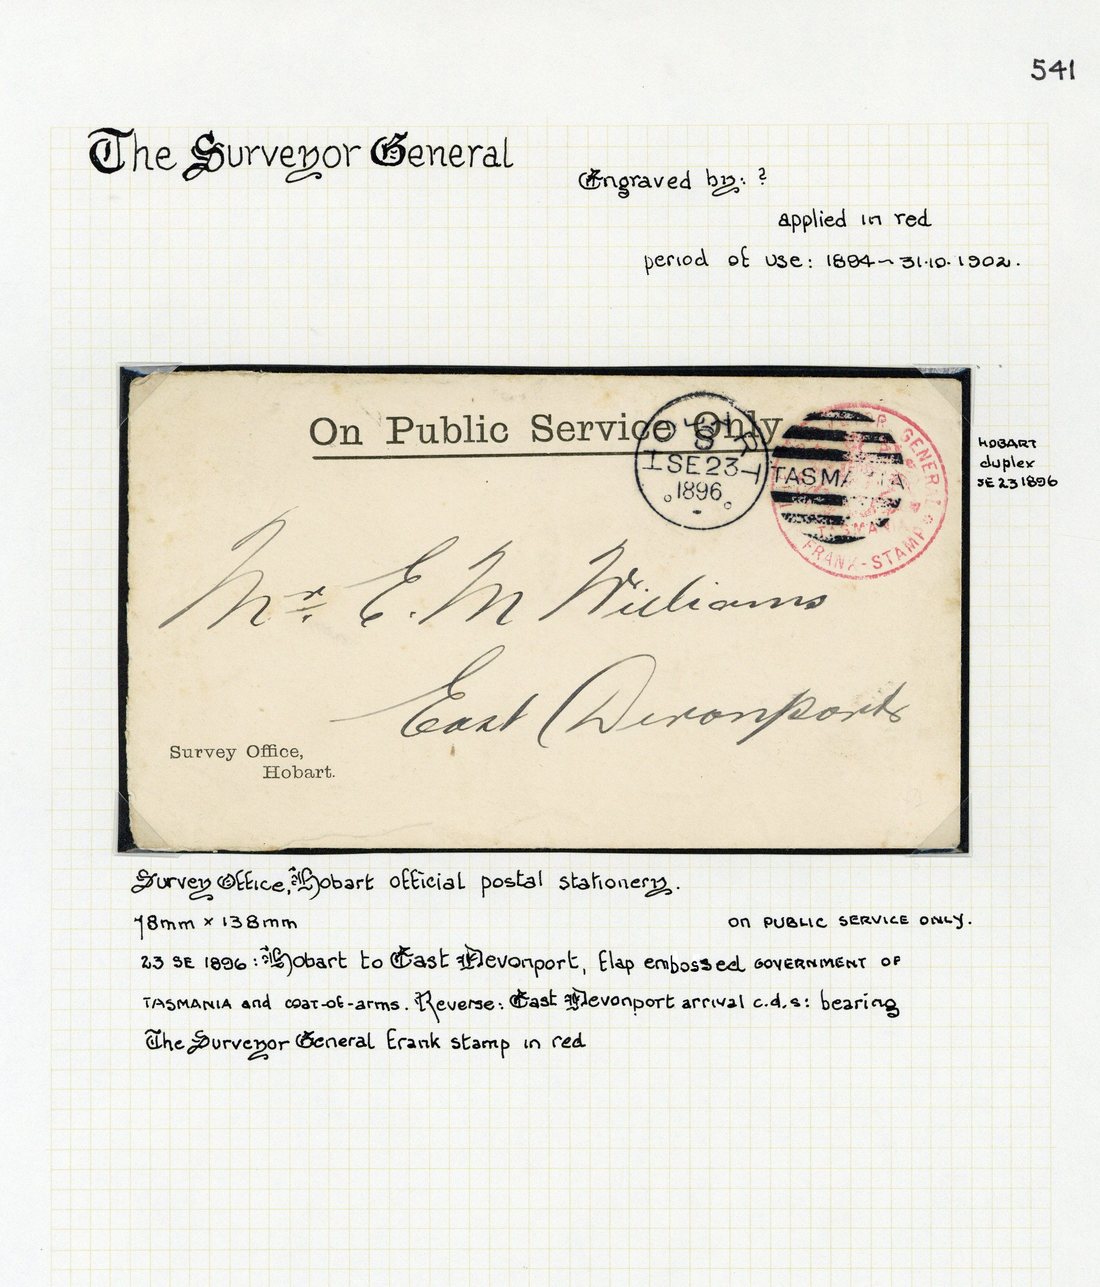 541
The Surveyor General
Engraved by: ?
applied in red
period of use: 1894~31.10.1902.
On Public Service Only
HOBART
8
SE 23
1896
TASMANIA
SURVEYOR GENERAL
TASMANIA
FRANK-STAMP
HOBART
duplex
SE 23 1896
Mr. E. M Williams
East Devonport
Survey Office,
Hobart.
Survey Office, Hobart official postal stationery.
78mm x 138mm
ON PUBLIC SERVICE ONLY.
23 SE 1896: Hobart to East Devonport, flap embossed GOVERNMENT OF
TASMANIA and coat-of-arms. Reverse: East Devonport arrival c.d.s: bearing
The Surveyor General frank stamp in red